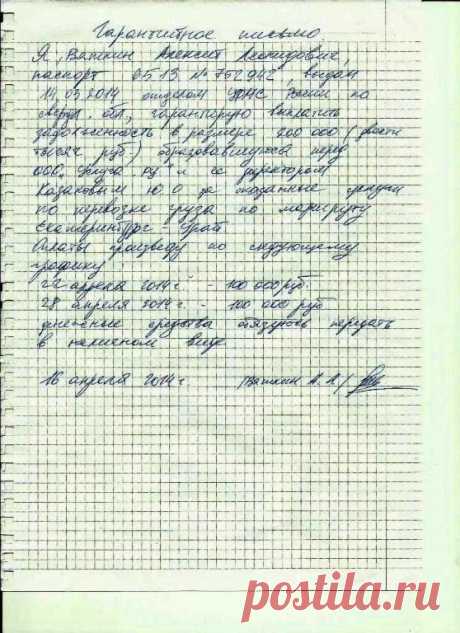 Гарантийное письмо
Я, Вяткин Алексей Леонидович,
паспорт 0513 № 752942, выдан
14.03.2014 отделом УФМС России по
обл, гарантирую выплатить
задолженность в размере 200 000 (двести
тысяч руб) образовавшуюся перед
ООО и её директором
Казаковым Ю О за оказанные услуги
по перевозке груза по маршруту
Екатеринбург -
Оплаты произведу по следующему
графику
22 апреля 2014 г. - 100 000 руб.
28 апреля 2014 г. - 100 000 руб
Денежные средства обязуюсь передать
в наличном виде
16 апреля 2014 г. /Вяткин А. Л/
postila.ru